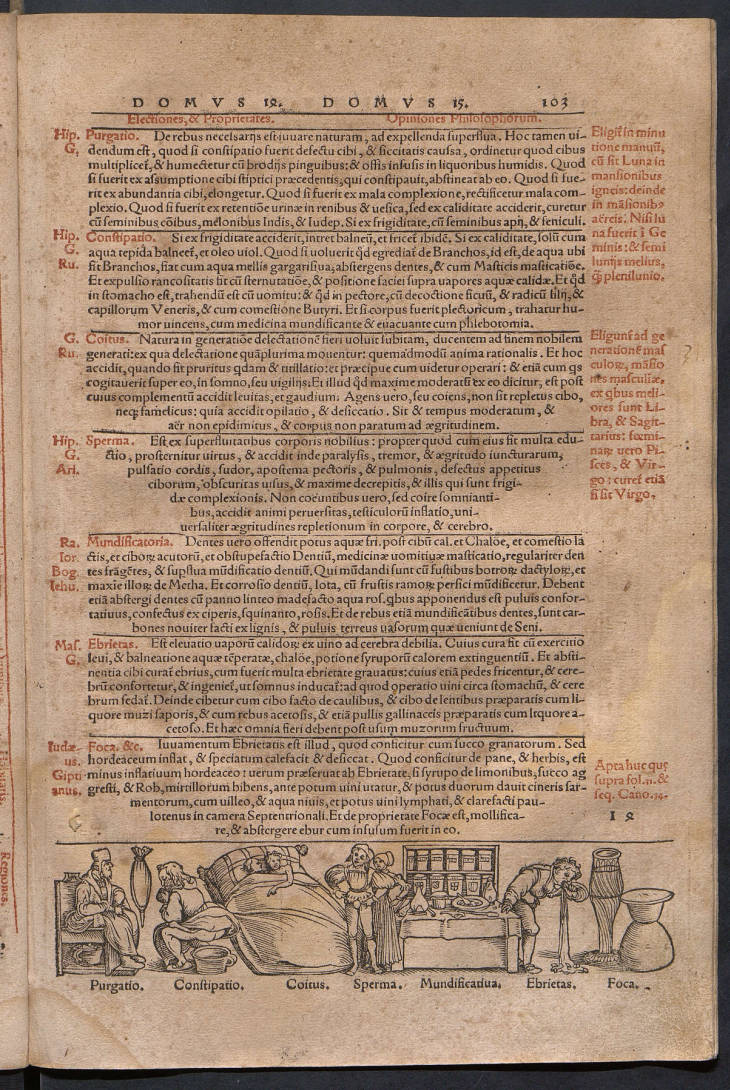 DOMVS 12. DOMVS 15. 103
Electiones, & Proprietates. Opiniones Philosophorum.
Hip. Purgatio. De rebus necessarijs est iuuare naturam, ad expellenda superflua. Hoc tamen ui-
G. dendum est, quod si constipatio fuerit defectu cibi, & siccitatis caussa, ordinetur quod cibus
multiplicet, & humectetur cū brodijs pinguibus: & offis infusis in liquoribus humidis. Quod
si fuerit ex assumptione cibi stiptici præcedentis, qui constipauit, abstineat ab eo. Quod si fue-
rit ex abundantia cibi, elongetur. Quod si fuerit ex mala complexione, rectificetur mala com-
plexio. Quod si fuerit ex retentiōe urinæ in renibus & uesica, sed ex caliditate acciderit, curetur
cū seminibus cōibus, melonibus Indis, & Iudep. Si ex frigiditate, cū seminibus apij, & feniculi.
Eligit̄ in minu
tione manuū,
cū sit Luna in
mansionibus
igneis: deinde
in māsionibꝰ
aëreis. Nisi lu
na fuerit ī Ge
minis: & semi
luniū melius,
ꝗ̄ plenilunio.
Hip. Constipatio. Si ex frigiditate acciderit, intret balneū, et fricet̄ ibidē. Si ex caliditate, solū cum
G. aqua tepida balneet̄, et oleo uiol. Quod si uoluerit qd̄ egrediat̄ de Branchos, id est, de aqua ubi
Ru. fit Branchos, fiat cum aqua mellis gargarisma, abstergens dentes, & cum Masticis masticatiōe.
Et expulsio rancositatis fit cū sternutatiōe, & positione faciei supra uapores aquæ calidæ. Et qd̄
in stomacho est, trahendū est cū uomitu: & qd̄ in pectore, cū decoctione ficuū, & radicū lilij, &
capillorum Veneris, & cum comestione Butyri. Et si corpus fuerit plectoricum, trahatur hu-
mor uincens, cum medicina mundificante & euacuante cum phlebotomia.
G. Coitus. Natura in generatiōe delectationē fieri uoluit subitam, ducentem ad finem nobilem
Ru. generati: ex qua delectatione quāplurima mouentur: quemadmodū anima rationalis. Et hoc
accidit, quando fit pruritus qdam & titillatio: et præcipue cum uidetur operari: & etiā cum qs
cogitauerit super eo, in somno, seu uigilijs. Et illud qd̄ maxime moderatū ex eo dicitur, est post
cuius complementū accidit leuitas, et gaudium. Agens uero, seu coiens, non sit repletus cibo,
neqꝫ famelicus: quia accidit opilatio, & desiccatio. Sit & tempus moderatum, &
aër non epidimitus, & corpus non paratum ad ægritudinem.
Eliguntˉ ad ge
nerationē mas
culoꝝ, māsio
nes masculiæ,
ex qbus meli-
ores sunt Li-
bra, & Sagit-
tarius: fœmi-
naꝝ uero Pi-
sces, & Vir-
go: curet̄ etiā
si sit Virgo.
Hip. Sperma. Est ex superfluitatibus corporis nobilius: propter quod cum eius fit multa edu-
G. ctio, prosternitur uirtus, & accidit inde paralysis, tremor, & ægritudo iuncturarum,
Ari. pulsatio cordis, sudor, apostema pectoris, & pulmonis, defectus appetitus
ciborum, obscuritas uisus, & maxime decrepitis, & illis qui sunt frigi-
dæ complexionis. Non coëuntibus uero, sed coire somnianti-
bus, accidit animi peruersitas, testiculorū inflatio, uni-
uersaliter ægritudines repletionum in corpore, & cerebro.
Ra. Mundificatoria. Dentes uero offendit potus aquæ fri. post cibū cal. et Chalōe, et comestio la
Ior. ctis, et ciboꝝ acutorū, et obstupefactio Dentiū, medicinæ uomitiuæ masticatio, regulariter den
Bog. tes frāgētes, & supflua mūdificatio dentiū. Qui mūdandi sunt cū fustibus botroꝝ dactyloꝝ, et
Iehu. maxie illoꝝ de Metha. Et corrosio dentiū, lota, cū frustis ramoꝝ persici mūdificetur. Debent
etiā abstergi dentes cū panno linteo madefacto aqua ros. qbus apponendus est puluis confor-
tatiuus, confectus ex ciperis, squinanto, rosis. Et de rebus etiā mundificātibus dentes, sunt car-
bones nouiter facti ex lignis, & puluis terreus uasorum quæ ueniunt de Seni.
Mas. Ebrietas. Est eleuatio uaporū calidoꝝ ex uino ad cerebra debilia. Cuius cura fit cū exercitio
G. leui, & balneatione aquæ tēperatæ, chalōe, potione syruporū calorem extinguentiū. Et absti-
nentia cibi curat̄ ebrius, cum fuerit multa ebrietate grauatus: cuius etiā pedes fricentur, & cere-
brū confortetur, & ingeniet̄, ut somnus inducat̄: ad quod operatio uini circa stomachū, & cere
brum sedat̄. Deinde cibetur cum cibo facto de caulibus, & cibo de lentibus præparatis cum li-
quore muzi saporis, & cum rebus acetosis, & etiā pullis gallinaceis præparatis cum liquore a-
cetoso. Et hæc omnia fieri debent post usum muzorum fructuum.
Iudæ- Foca. &c. Iuuamentum Ebrietatis est illud, quod conficitur cum succo granatorum. Sed
us. hordeaceum inflat, & speciatum calefacit & desiccat. Quod conficitur de pane, & herbis, est
Gipti minus inflatiuum hordeaceo: uerum præseruat ab Ebrietate, si syrupo de limonibus, succo ag
anus. gresti, & Rob, mirtillorum bibens, ante potum uini utatur, & potus duorum dauit cineris sar-
mentorum, cum uilleo, & aqua niuis, et potus uini lymphati, & clarefacti pau-
lotenus in camera Septentrionali. Et de proprietate Focæ est, mollifica-
re, & abstergere ebur cum infusum fuerit in eo.
Apta huc quę
supra fol. 11. &
seq. Cano. 14.
I 2
Purgatio. Constipatio. Coitus. Sperma. Mundificatiua. Ebrietas. Foca.